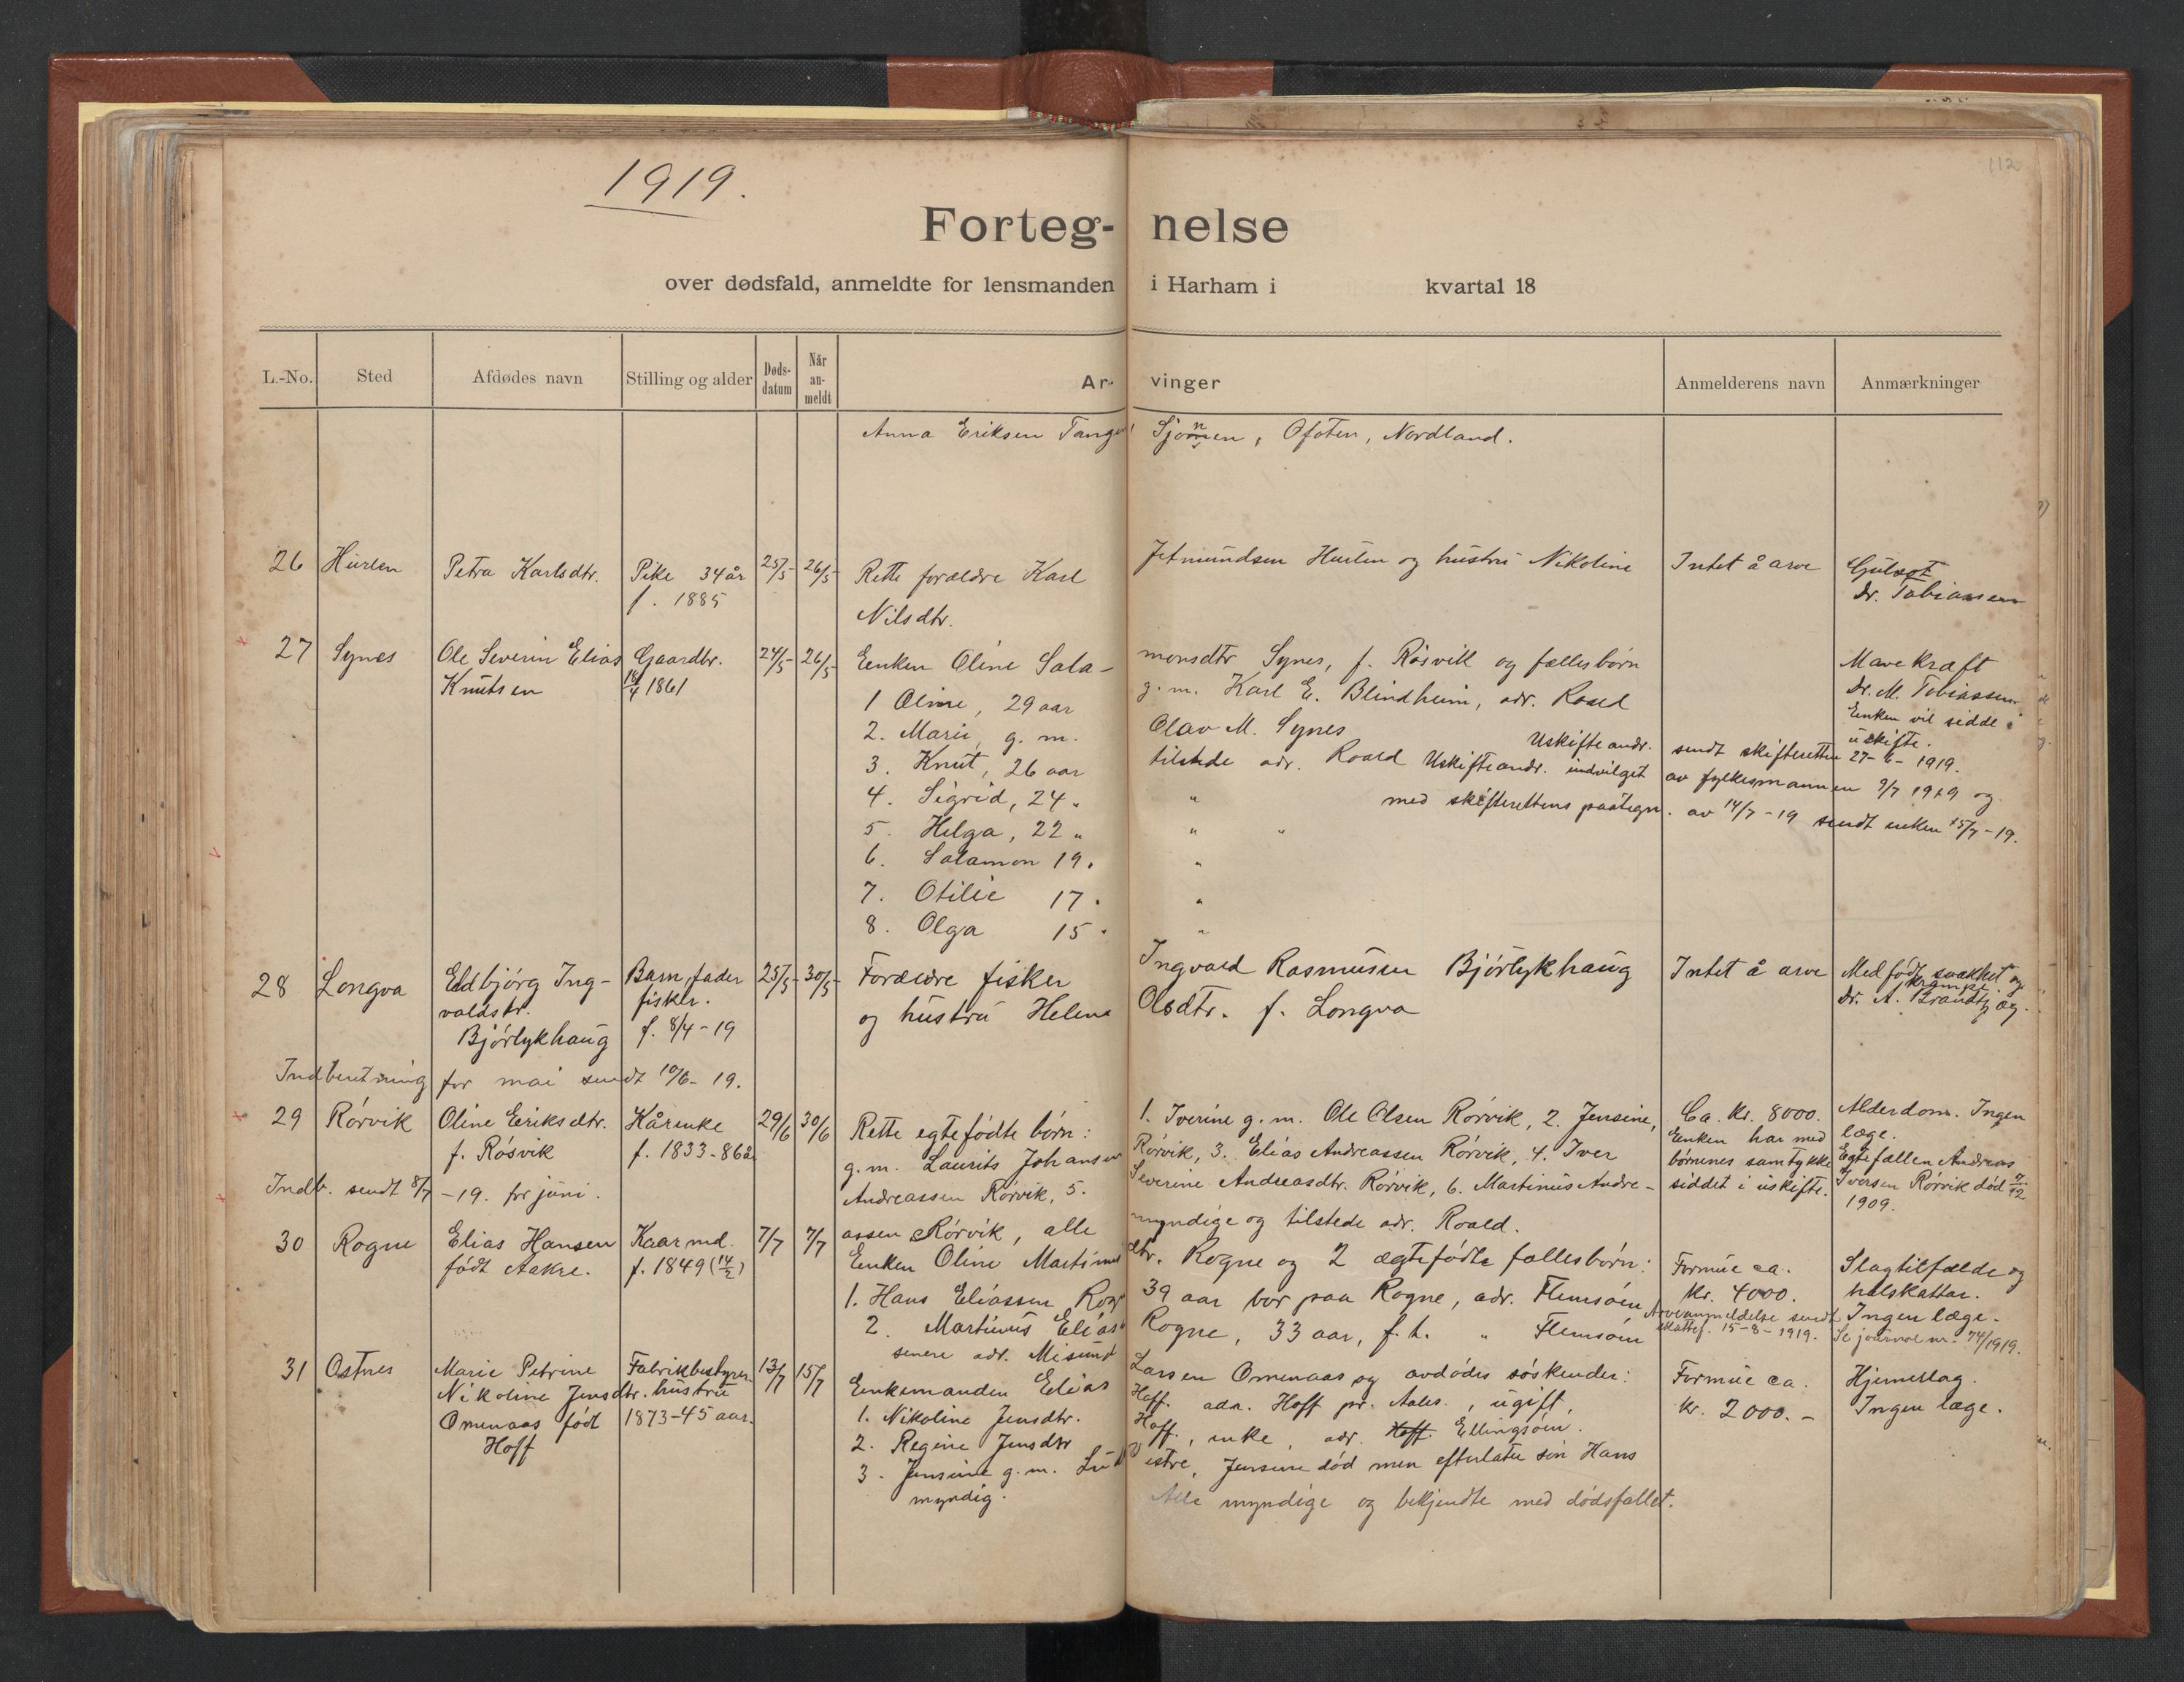 112
1919.
Forteg- nelse
over dødsfald, anmeldte for lensmanden i Harham i kvartal 18
L.-No. Sted Afdødes navn Stilling og alder Døds-datum Når an-meldt Ar- vinger Anmelderens navn Anmærkninger
Anna Eriksen Tange Sjomen, Ofoten, Nordland.
26 Hurlen Petra Karlsdtr. Pike 34 år 25/5- 26/5- Rette forældre Karl Jetmundsen Hurlen og hustru Nikoline Intet å arve Gulsot
f. 1885 Nilsdtr. Dr. Tobiassen
27 Synes Ole Severin Elias Gaardbr. 24/5- 26/5- Enken Oline Sala- monsdtr Synes, f. Røsvik og fællesbørn Mavekræft
Knutsen 18/4 1861 1 Oline, 29 aar g. m. Karl E. Blindheim, adr. Roald Dr. M. Tobiassen
2. Marie, g. m. Olav M. Synes Enken vil sidde i uskifte.
Uskifteandr. sendt skifteretten 27-6-1919.
3. Knut, 26 aar tilstede adr. Roald Uskifteandr. indvilget av fylkesmannen 9/7 1919 og
4. Sigrid, 24 " " med skifterettens paategn. av 14/7-19 sendt enken 15/7-19.
5. Helga, 22 " " "
6. Salamon 19 " "
7. Otilie 17 " "
8. Olga 15 " "
28 Longva Eldbjørg Ing- Barn, fader 25/5- 30/5- Forældre fisker Ingvald Rasmussen Bjørlykhaug Intet å arve Medfødt svakhet og krampe.
valdsdtr. fisker. og hustru Helena Olsdtr. f. Longva Dr. A. Brandtzæg.
Bjørlykhaug f. 8/4-19
Indberetning for mai sendt 10/6-19.
29 Rørvik Oline Eriksdtr. Kårenke 29/6 30/6 Rette egtefødte børn: 1. Iverine g. m. Ole Olsen Rørvik, 2. Jensine, Ca. kr. 8000. Alderdom. Ingen
f. Røsvik f. 1833-86 år g. m. Laurits Johansen Rørvik, 3. Elias Andreassen Rørvik, 4. Iver Enken har med læge.
Andreassen Rørvik, 5. Severine Andreasdtr. Rørvik, 6. Martinus Andre- børnenes samtykke Egtefællen Andreas
Indb. sendt 8/7-19. for juni. assen Rørvik, alle myndige og tilstede adr. Roald. siddet i uskifte. Iversen Rørvik død 7/12 1909.
30 Rogne Elias Hansen Kaarmd. 7/7 7/7 Enken Oline Martinus dtr. Rogne og 2 ægtefødte fællesbørn: Formue ca. Slagtilfælde og
født Aakre. f. 1849 (14/2) 1. Hans Eliassen Rogne 39 aar bor paa Rogne, adr. Flemsøen kr. 4000. halskattar.
2. Martinus Elias Rogne, 33 aar, f. t. " Flemsøen Arveanmeldelse sendt Ingen læge.
senere adr. Misund skattef. 15-8-1919. Se journal nr. 74/1919.
31 Østnes Marie Petrine Fabrikbestyrer. 13/7 15/7 Enkemanden Elias Larsen Omenaas og avdødes søskender: Formue ca. Hjerneslag.
Nikoline Jensdtr. hustru 1. Nikoline Jensdtr. Hoff. adr. Hoff pr. Aales., ugift, kr. 2000.- Ingen læge.
Omenaas født 1873-45 aar. 2. Regine Jensdtr Hoff, enke, adr. Hoff. Ellingsøen.
Hoff 3. Jensine g. m. Vestre, Jensine død men efterlater søn Hans
myndig. Alle myndige og bekjendte med dødsfallet.